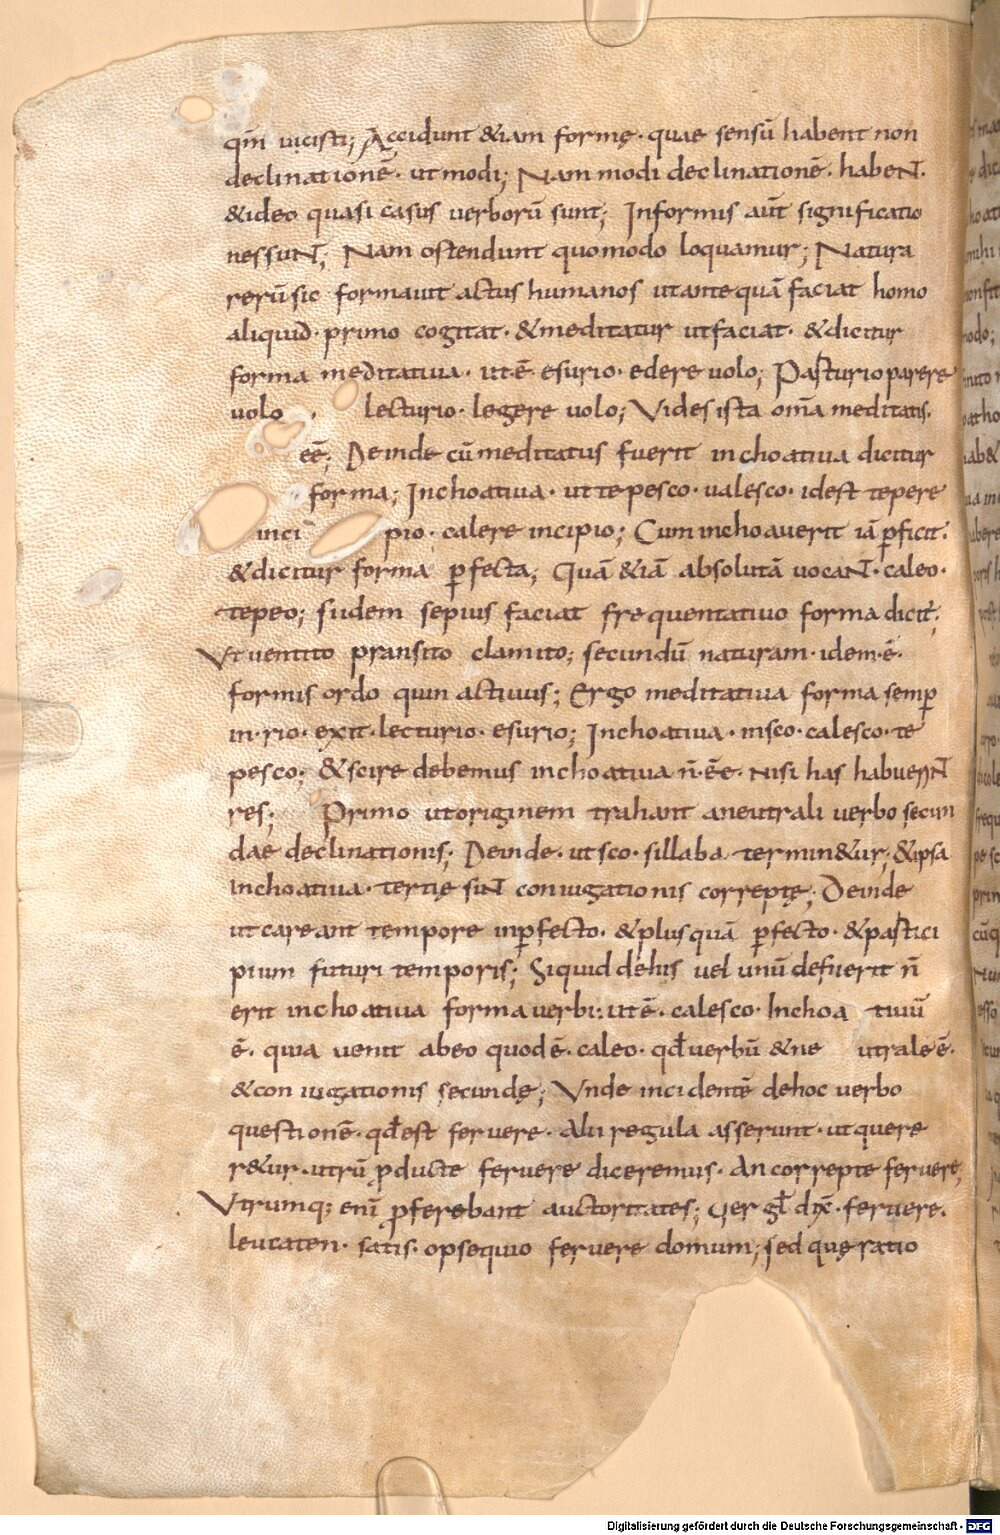 qm̄ uicisti; Accidunt &iam formę· quae sensū habent non
declinationē· ut modi; Nam modi declinationē· habeNT·
&ideo quasi casus uerborū sunt; Informis aūt significatio
nes suNT; Nam ostendunt quomodo loquamur; Natura
rerū sic formauit actus humanos ut antequā faciat homo
aliquid· primo cogitat· & meditatur ut faciat· & dicitur
forma meditatiua· ut·ē· esurio· edere uolo; Pasturio parere
uolo · lecturio· legere uolo; Vides ista om̄a meditatis·
eē; Deinde cū meditatus fuerit inchoatiua dicitur
forma; Inchoatiua· ut tepesco· ualesco· idest tepere
inci pio· calere incipio; Cum inchoauerit iā p̱ficit·
& dicitur forma p̱fecta; Quā &iā absolutā uocaNT· caleo·
tepeo; si idem sepius faciat frequentatiuo forma dicit̄;
Vt uentito pransito clamito; secundū naturam· idem·ē·
formis ordo quin actiuus; Ergo meditatiua forma semp̱
in·rio· exit· lecturio· esurio; Inchoatiua· insco· calesco· te
pesco; & scire debemus inchoatiua n̄·eē· nisi has habueriNT
res; Primo ut originem trahant aneutrali uerbo secun
dae declinationis; Deinde· ut sco· sillaba termin&ur; &ipsa
Inchoatiua· tertię siNT coniugationis correptę; Deinde
ut careant tempore inp̱fecto· & plus quā p̱fecto· & pastici
pium futuri temporis; Siquid dehis uel unū defuerit n̄
erit inchoatiua forma uerbi: ut ē· calesco· Inchoa tiuū
ē· quia uenit abeo quod ē· caleo· qđ uerbū & ne utrale ē·
& coniugationis secundę; Vnde incidentē dehoc uerbo
questionē· qđ est feruere· Alii regula asserunt· ut quere
r&ur· utrū p̱ducte feruere diceremus· An correpte feruere;
Vtrumq; enī p̱ferebant auctoritates; Uergl̄ dix̄· feruere·
leucaten· satis· opsequio feruere domum; sed quę ratio